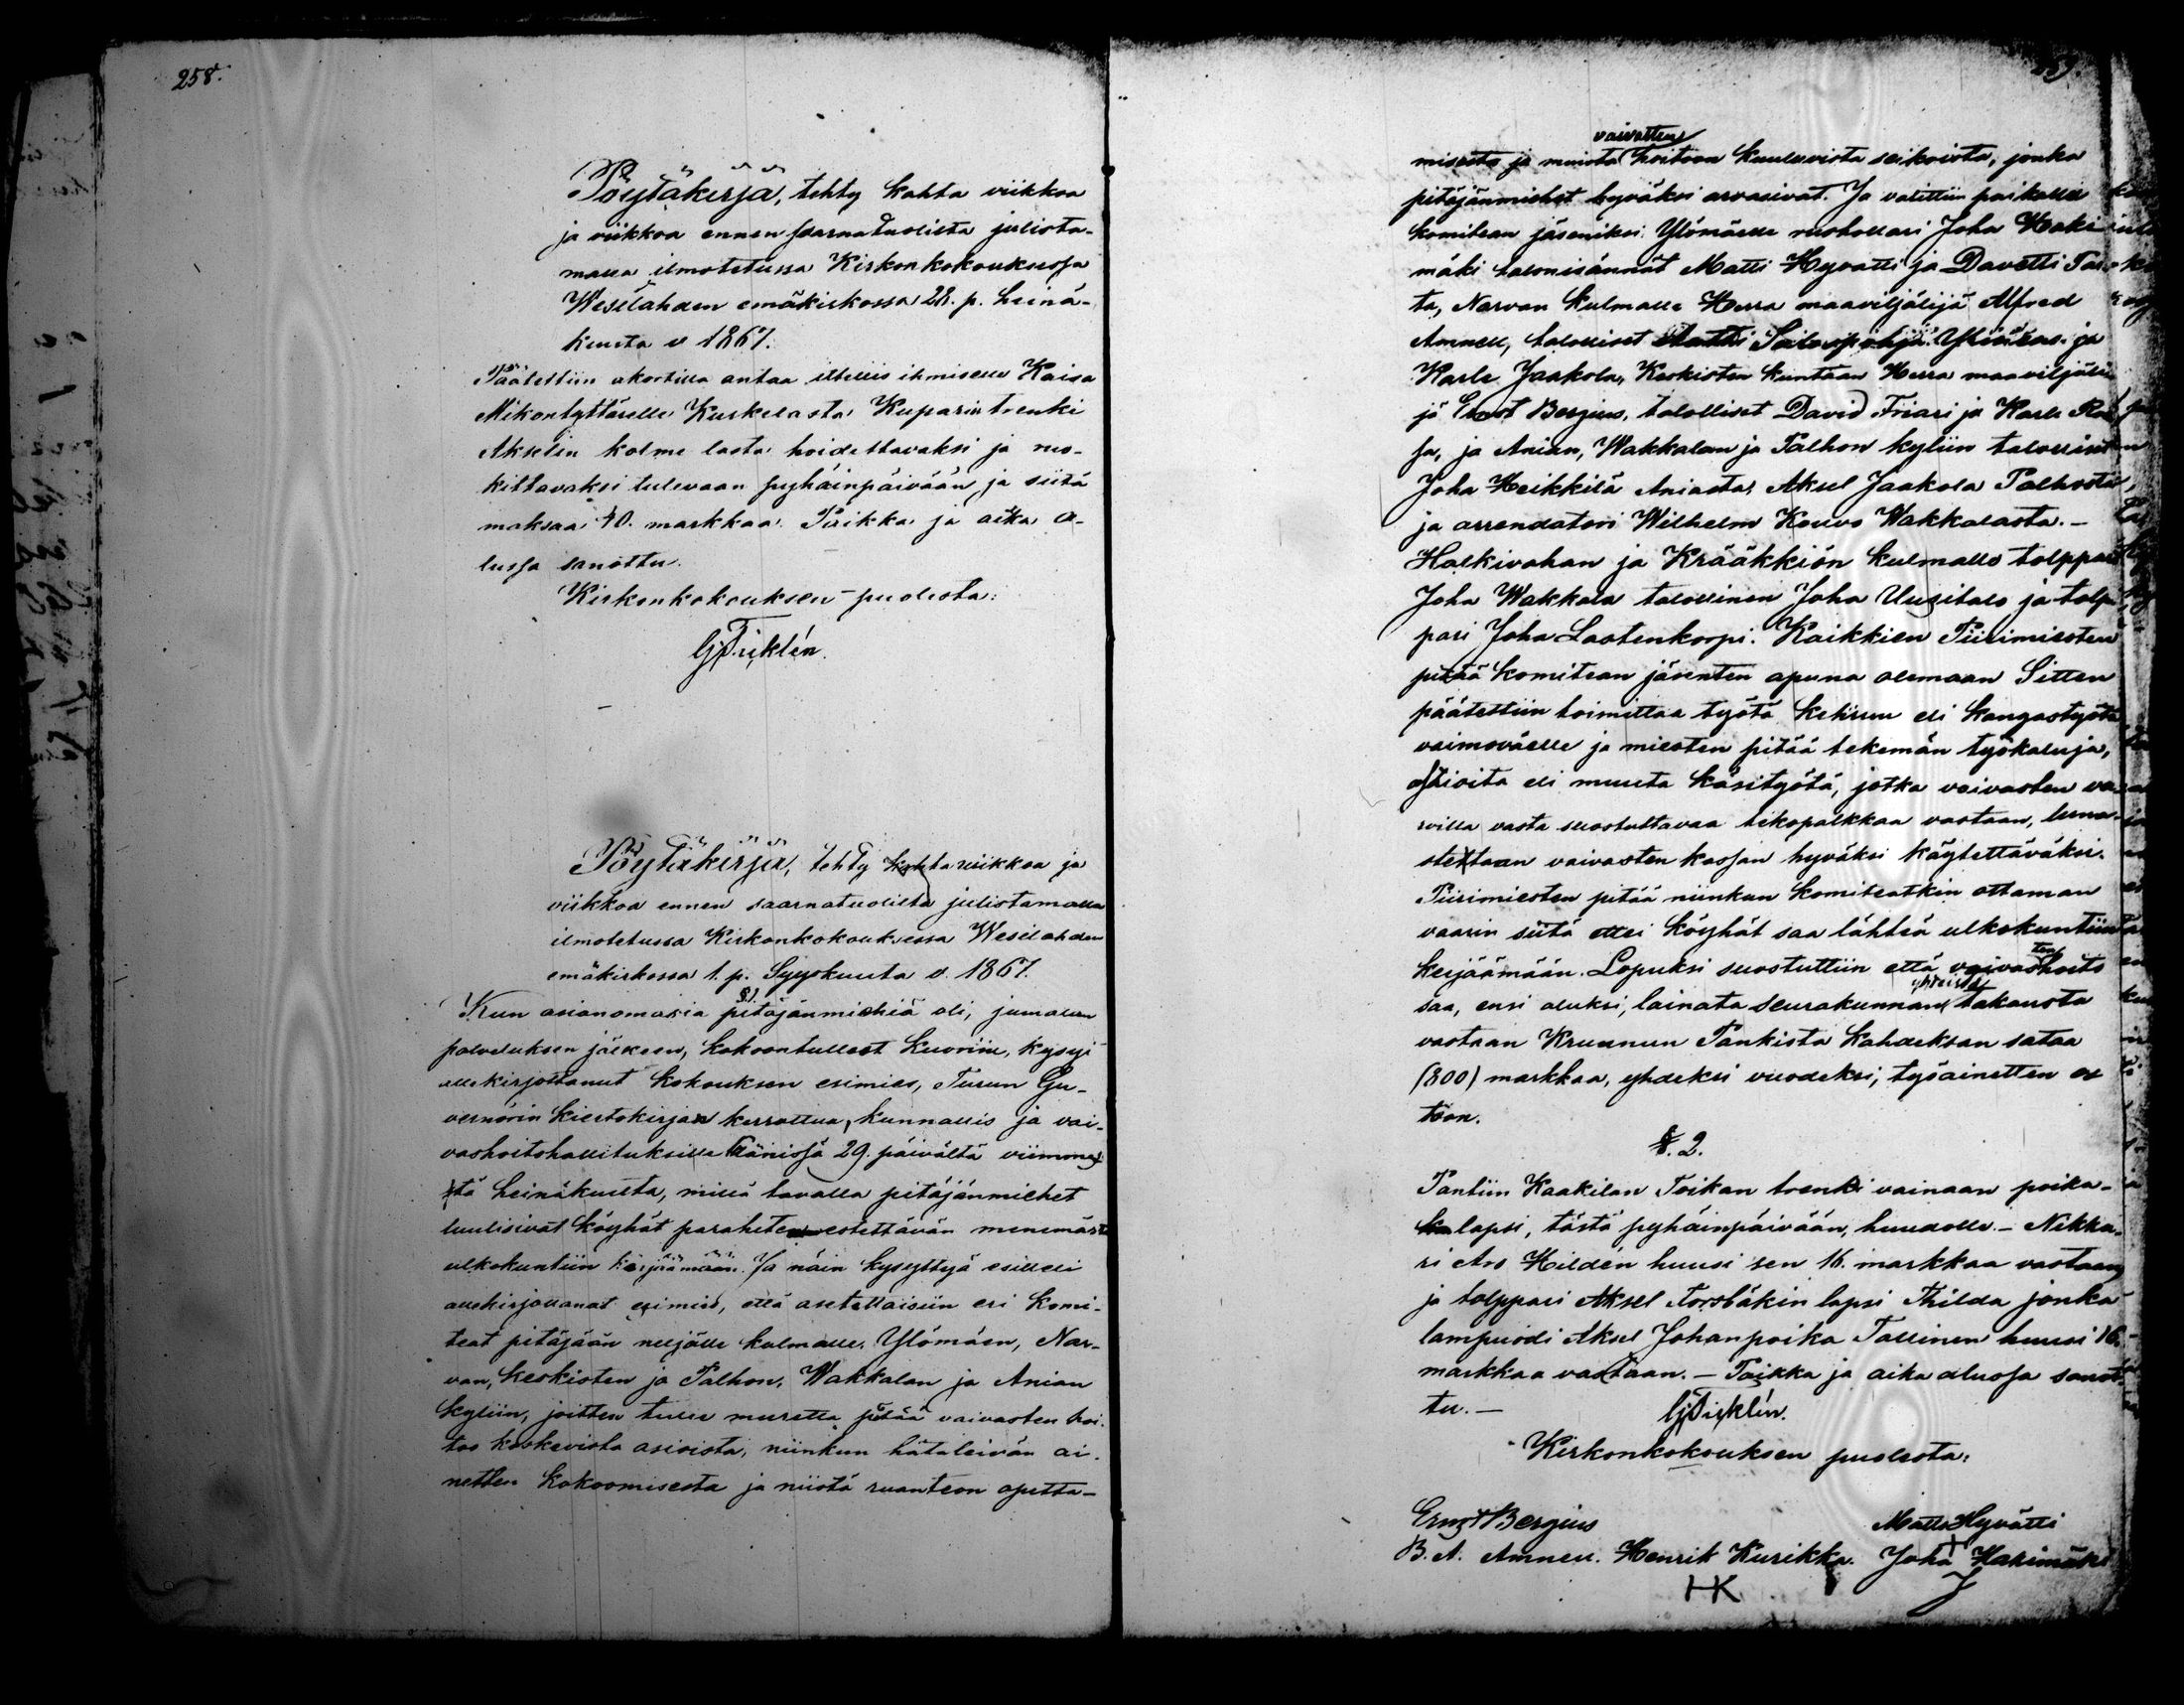 258.
Pöytäkirja, tehty kahta viikkoa
ja viikkoa ennen saarnatuolista julista-
malla ilmotetussa Kirkonkokouksessa
Wesilahden emäkirkossa 28. p. heinä-
kuuta v 1867.
Päätettiin akortilla antaa itsellis ihmiselle Kaisa
Mikontyttärelle Kuskelasta Kuparin trenki
Akselin kolme lasta hoidettavaksi ja ruo-
kittavaksi tulevaan pyhäinpäivään ja siitä
maksaa 40. markkaa. Paikka ja aika a-
lussa sanottu.
Kirkonkokouksen puolesta:
Gj Tuklén.
Pöytäkirja, tehty kahta viikkoa ja
viikkoa ennen saarnatuolilta julistamalla
ilmotetussa Kirkonkokouksessa Wesilahden
emäkirkossa 1. p. Syyskuuta v. 1867.
§1.
Kun asianomasia pitäjänmiehiä oli, jumalan
palveluksen jälkeen, kokoontullest kuoriin, kysyi
allekirjottanut kokouksen esimies, Turun Gu-
vernörin kiertokirjan kerrottua, kunnallis ja vai-
vashoitohallituksille läänissä 29. päivältä viimmes
tä heinäkuuta, millä tavalla pitäjänmiehet
luulisivat köyhät parahite estettävän menemäst
ulkokuntiin kerjäämään. Ja näin kysyttyä esitteli
allekirjottanut esimies, että asetettaisiin eri komi-
teat pitäjään neljälle kulmalle. Ylömäen, Nar-
van, Keskisten ja Palhon, Wakkalan ja Anian
kyliin, joitten tulee muretta pitää vaivasten hoi-
too koskevista asioista, niinkun hätäleivän ai-
netten kokoomisesta ja niistä ruanteon opetta-
259.
vaivasten
misesta ja muista hoitoon kuuluvista seikoista, jonka
pitäjänmiehet hyväksi arvasivat. Ja valittiin paikalla
komitean jäseniksi: Ylömäelle rusthollari Joha Haki
mäki talonisännät Matti Hyvatti ja Davetti Pas-
ta, Narvan kulmalle Herra maaviljälijä Alfred
Amnell, talolliset Matti Ylinen ja
Karle Jaakola, Keskisten kuntaan Herra maaviljäli
jä Ernst Bergius, talolliset David Friari ja Karle
ja Anian, Wakkalan ja Palhon kyliin talollis
Joha Heikkilä Aniasta, Aksel Jaakola Palhosta
ja arrendatori Wilhelm Kouvo Wakkalasta. –
Halkivahan ja Krääkkiön kulmalle tolppari
Joha Wakkala talollinen Joha Uusitalo ja tolp
pari Joha Lastenkorpi. Kaikkien Piirimiesten
pitää komitean jäsenten apuna oleman Sitten
päätettiin toimittaa työtä kehruu eli kangastyötä
vaimoväelle ja miesten pitää tekemän työkaluja,
astioita eli muuta käsityötä, jotka vaivasten va-
roilla vasta suostuttavaa tekopalkkaa vastaan, luna-
stettaan vaivasten kassan hyväksi käytettäväksi.
Piirimiesten pitää niinkun komiteatkin ottaman
vaarin siitä ettei köyhät saa lähteä ulkokuntiin
ten
kerjäämään. Lopuksi suostuttiin että vaivashoito
yhteistä
saa, ensi aluksi, lainata seurakunnan takausta
vastaan Kruunun Pankista kahdeksan sataa
(800) markkaa, yhdeksi vuodeksi, työainetten os
toon.
§. 2.
Pantiin Kaakilan Toikan trenki vainaan poika-
lapsi, tästä pyhäinpäivään, huudolle. – Nikka-
ri Aro Hildén huusi sen 16. markkaa vastaan
ja tolppari Aksel Torsbäkin lapsi Thilda jonka
lampuodi Aksel Johanpoika Tallinen huusi 16.
markkaa vastaan. – Paikka ja aika alussa sanot-
tu. –
Gj Tuklén.
Kirkonkokouksen puolesta:
Ernst Bergius Matti Hyvätti
B. A. Amnell. Henrik Kurikka. Joha Hakimäki
HK J